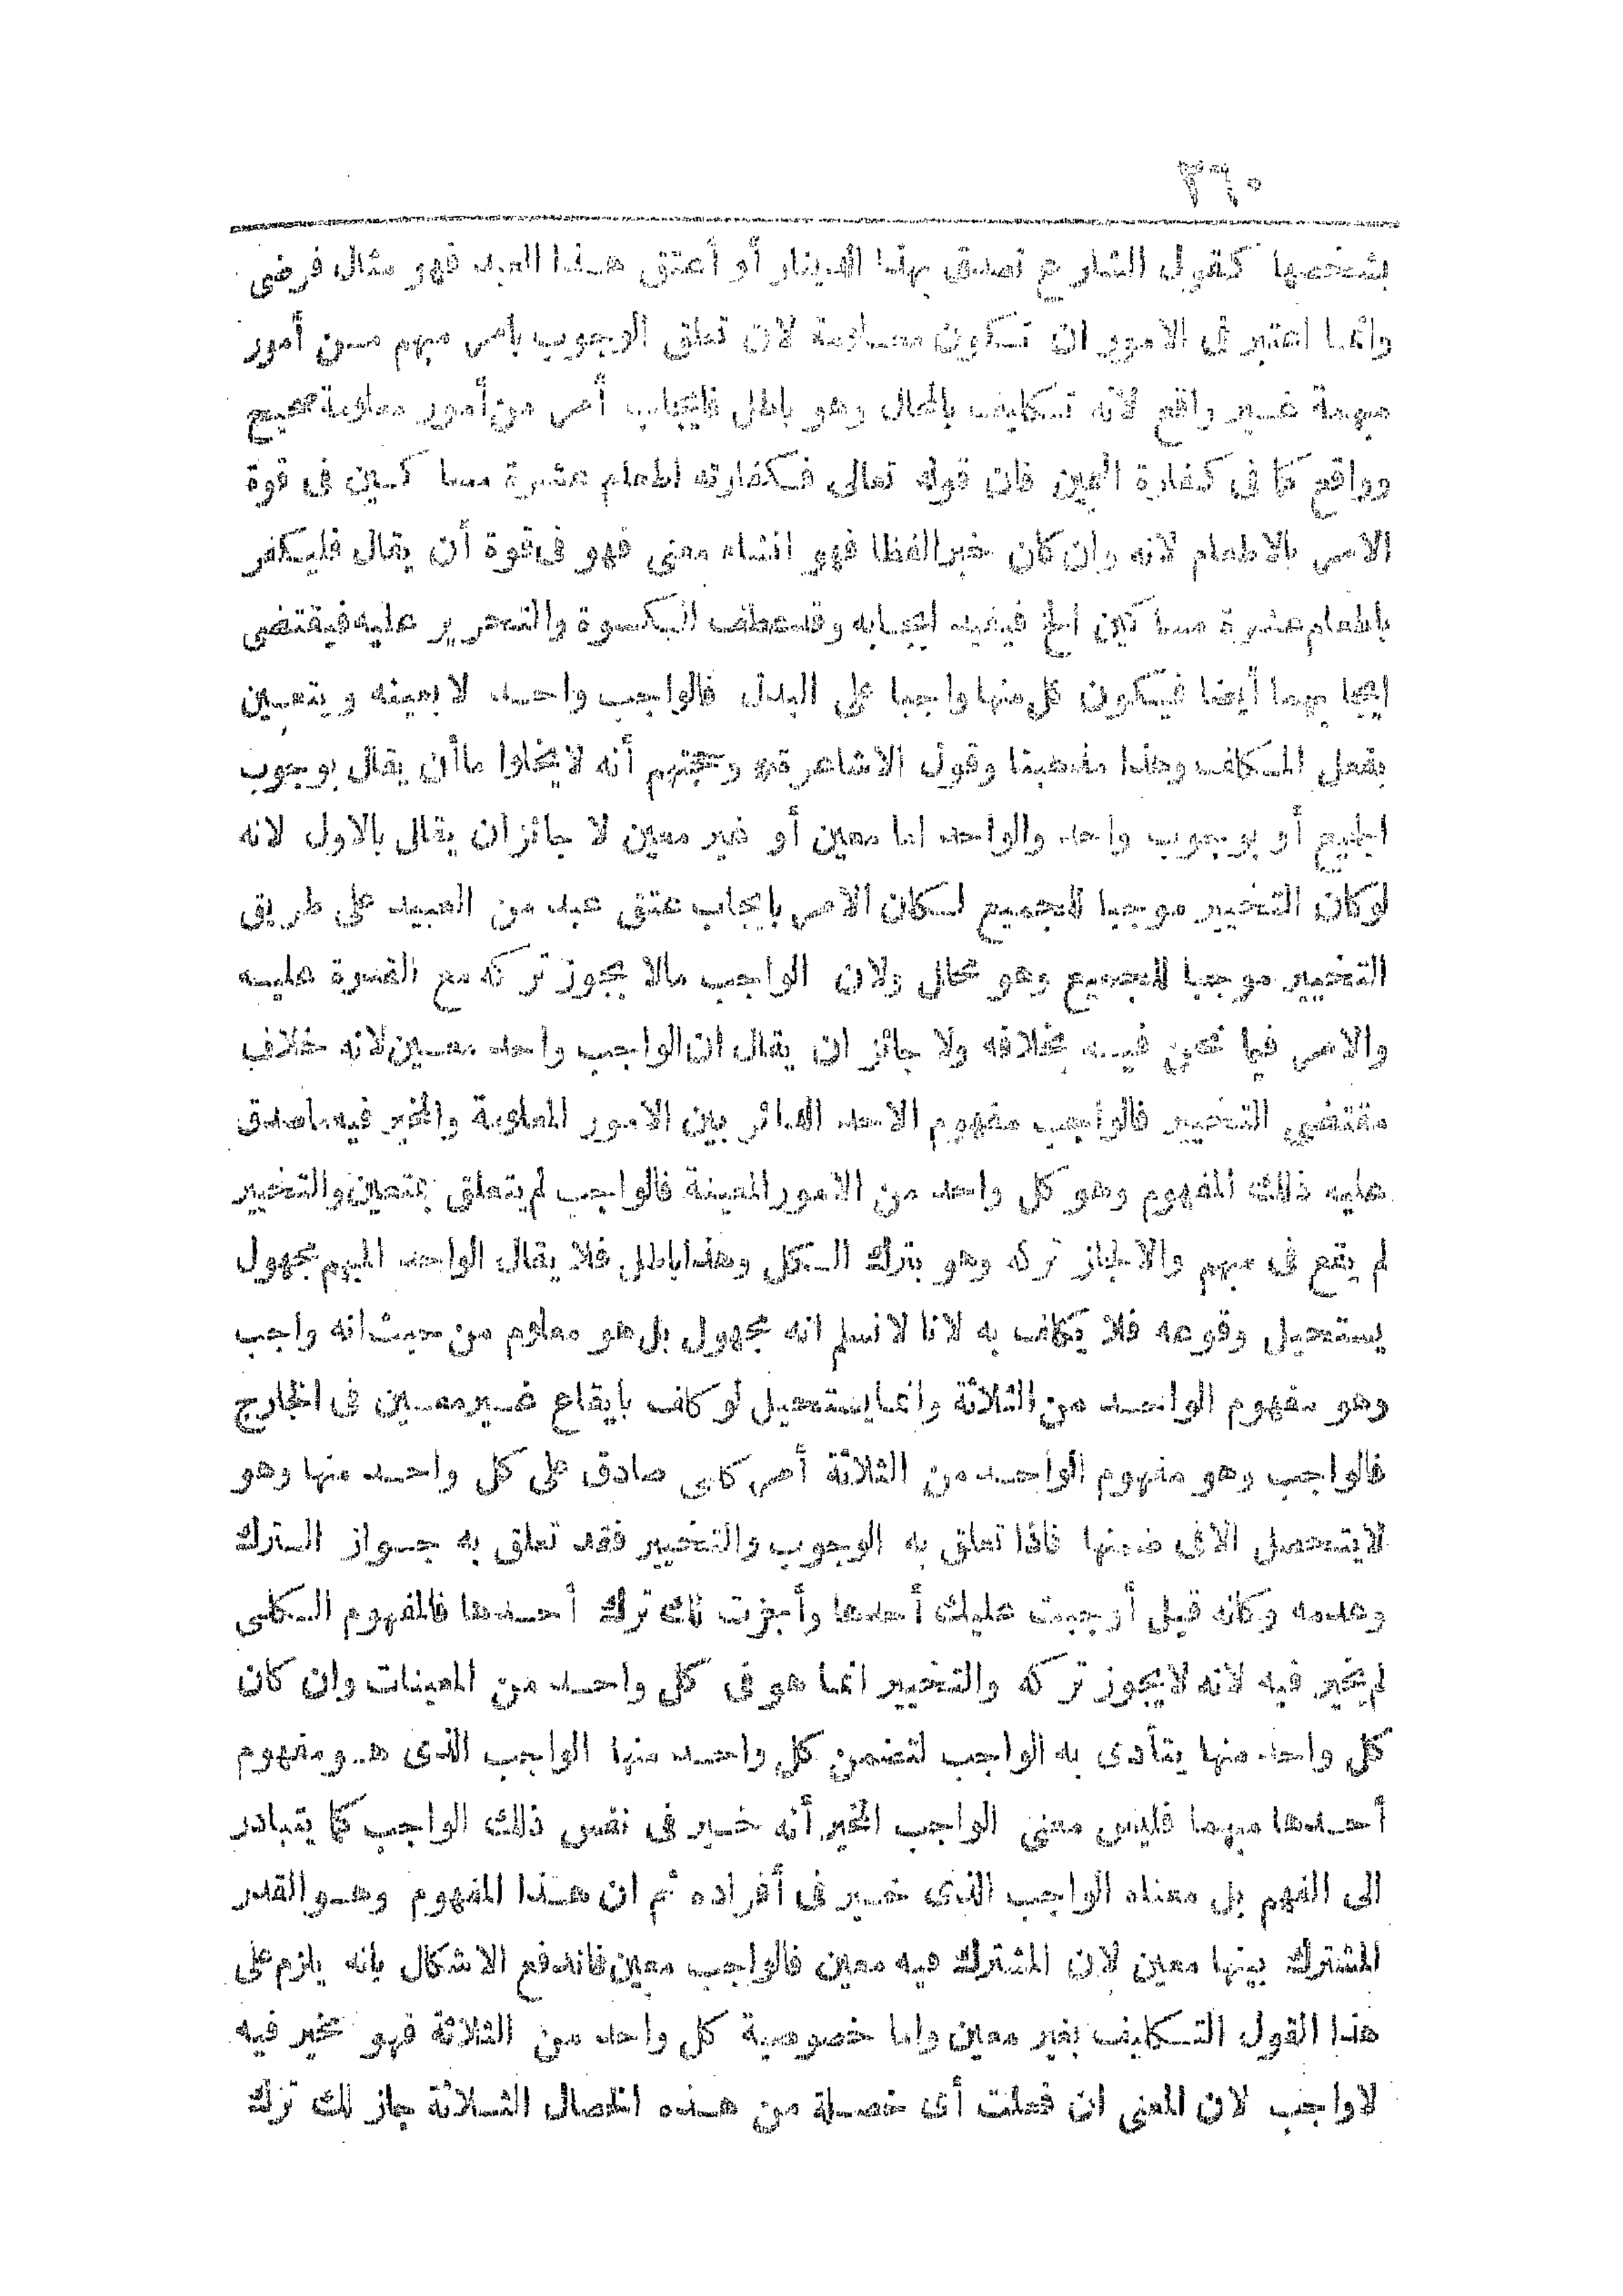 ٣٦٠
بشخصها كقول الشارع تصدق بهذا الدينار أو أعتق هذا العبد فهو مثال فرضى
وانما اعتبر فى الامور ان تكون معلومة لان تعلق الوجوب بامر مبهم من أمور
مبهمة غير واقع لانه تكليف بالمحال وهو باطل فايجاب أمر من أمور معلومة صحيح
وواقع كما فى كفارة اليمين فان قوله تعالى فكفارته اطعام عشرة مساكين فى قوة
الامر بالاطعام لانه وان كان خبرا لفظا فهو انشاء معنى فهو فى قوة أن يقال فليكفر
باطعام عشرة مساكين الخ فيفيد ايجابه وقد عطف الكسوة والتحرير عليه فيقتضى
ايجابهما أيضا فيكون كل منها واجبا على البدل فالواجب واحد لا بعينه ويتعين
بفعل المكلف وهذا مذهبنا وقول الاشاعرة وحجتهم أنه لا يخلو اما أن يقال بوجوب
الجميع أو بوجوب واحد والواحد اما معين أو غير معين لا جائز ان يقال بالاول لانه
لو كان التخيير موجبا للجميع لكان الامر بايجاب عتق عبد من العبيد على طريق
التخيير موجبا للجميع وهو محال ولان الواجب مالا يجوز تركه مع القدرة عليه
والامر فيما نحن فيه بخلافه ولا جائز ان يقال ان الواجب واحد معين لانه خلاف
مقتضى التخيير فالواجب مفهوم الاحد الدائر بين الامور المعلومة والمخير فيه ماصدق
عليه ذلك المفهوم وهو كل واحد من الامور المعينة فالواجب لم يتعلق بمتعين والتخيير
لم يقع فى مبهم والا لجاز تركه وهو بترك الكل وهذا باطل فلا يقال الواحد المبهم مجهول
يستحيل وقوعه فلا يكلف به لانا لا نسلم انه مجهول بل هو معلوم من حيث انه واجب
وهو مفهوم الواحد من الثلاثة وانما يستحيل لو كلف بايقاع غير معين فى الخارج
فالواجب وهو مفهوم الواحد من الثلاثة أمر كلى صادق على كل واحد منها وهو
لا يتحصل الا فى ضمنها فاذا تعلق به الوجوب والتخيير فقد تعلق به جواز الترك
وعدمه وكانه قيل أوجبت عليك أحدها وأجزت لك ترك أحدها فالمفهوم الكلى
لم يخير فيه لانه لا يجوز تركه والتخيير انما هو فى كل واحد من المعينات وان كان
كل واحد منها يتأدى به الواجب لتضمن كل واحد منها الواجب الذى هو مفهوم
أحدها مبهما فليس معنى الواجب المخير أنه خير فى نفس ذلك الواجب كما يتبادر
الى الفهم بل معناه الواجب الذى خير فى أفراده ثم ان هذا المفهوم وهو القدر
المشترك بينها معين لان المشترك فيه معين فالواجب معين فاندفع الاشكال بانه يلزم على
هذا القول التكليف بغير معين واما خصوصية كل واحد من الثلاثة فهو مخير فيه
لا واجب لان المعنى ان فعلت أى خصلة من هذه الخصال الثلاثة جاز لك ترك